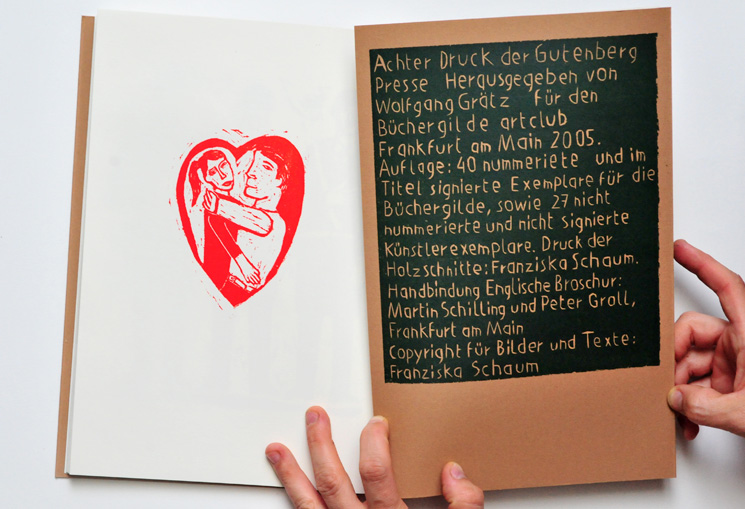 Achter Druck der Gutenberg
Presse Herausgegeben von
Wolfgang Grätz für den
Büchergilde artclub
Frankfurt am Main 2005.
Auflage: 40 nummeriete und im
Titel signierte Exemplare für die
Büchergilde, sowie 27 nicht
nummerierte und nicht signierte
Künstlerexemplare. Druck der
Holzschnitte: Franziska Schaum.
Handbindung Englische Broschur:
Martin Schilling und Peter Groll,
Frankfurt am Main
Copyright für Bilder und Texte:
Franziska Schaum